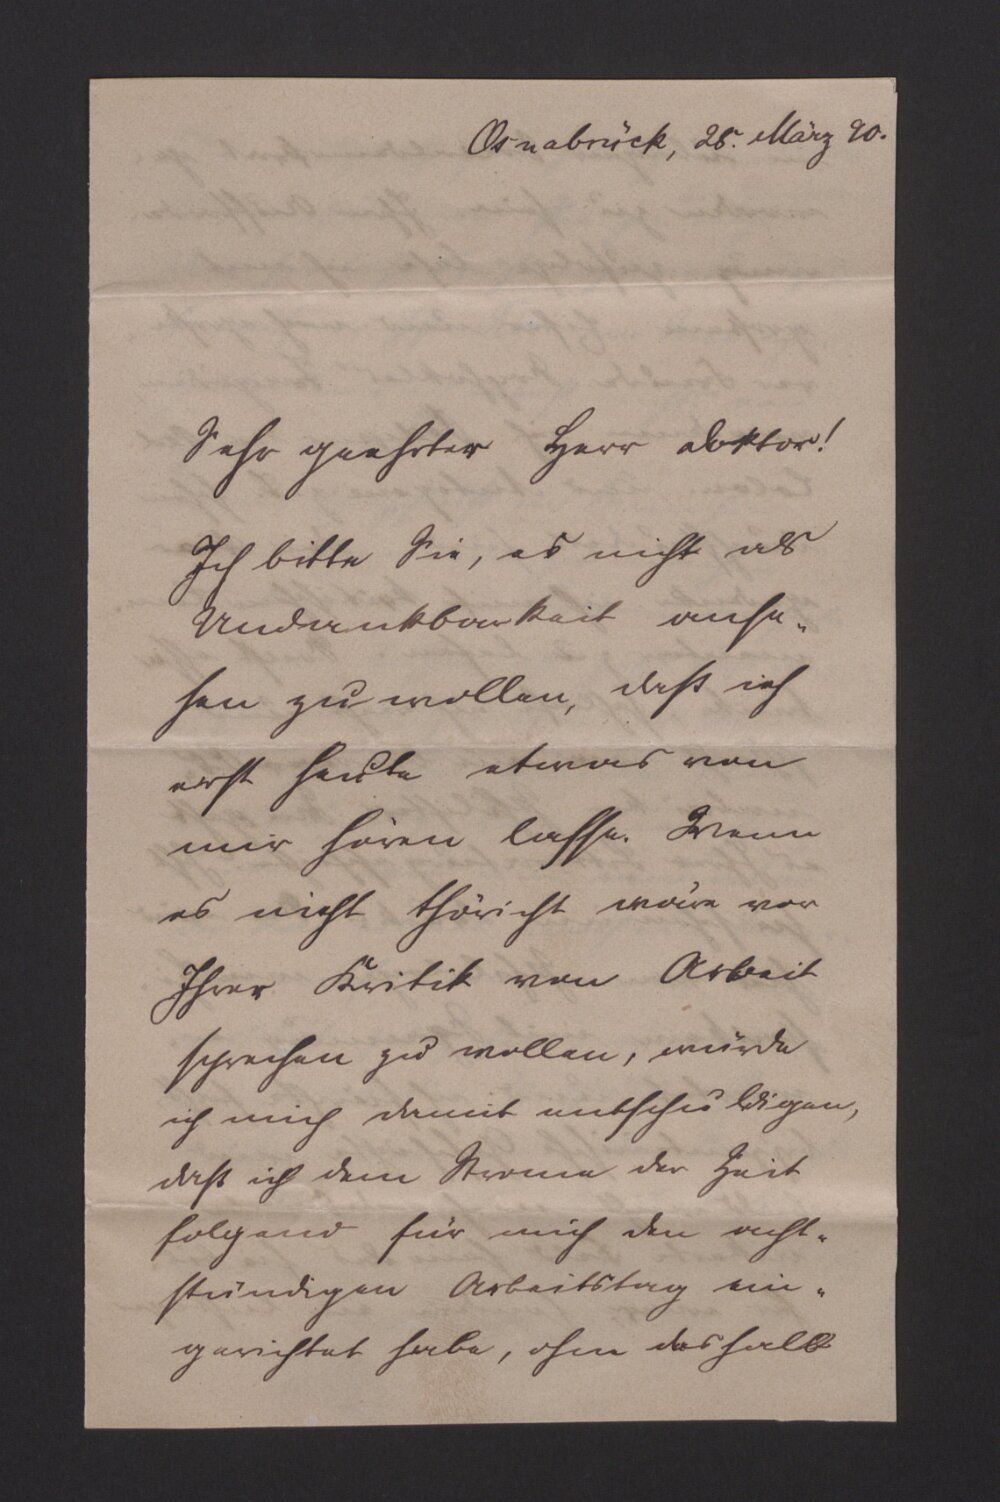 Osnabrück, 28. März 90.
Sehr geehrter Herr Doktor!
Ich bitte Sie, es nicht als
Undankbarkeit anse-
hen zu wollen, daß ich
erst heute etwas von
mir hören lasse. Wenn
es nicht thöricht wäre vor
Ihrer Kritik von Arbeit
sprechen zu wollen, würde
ich mich damit entschuldigen,
daß ich dem Strome der Zeit
folgend für mich den acht-
stündigen Arbeitstag ein-
gerichtet habe, ohne deshalb